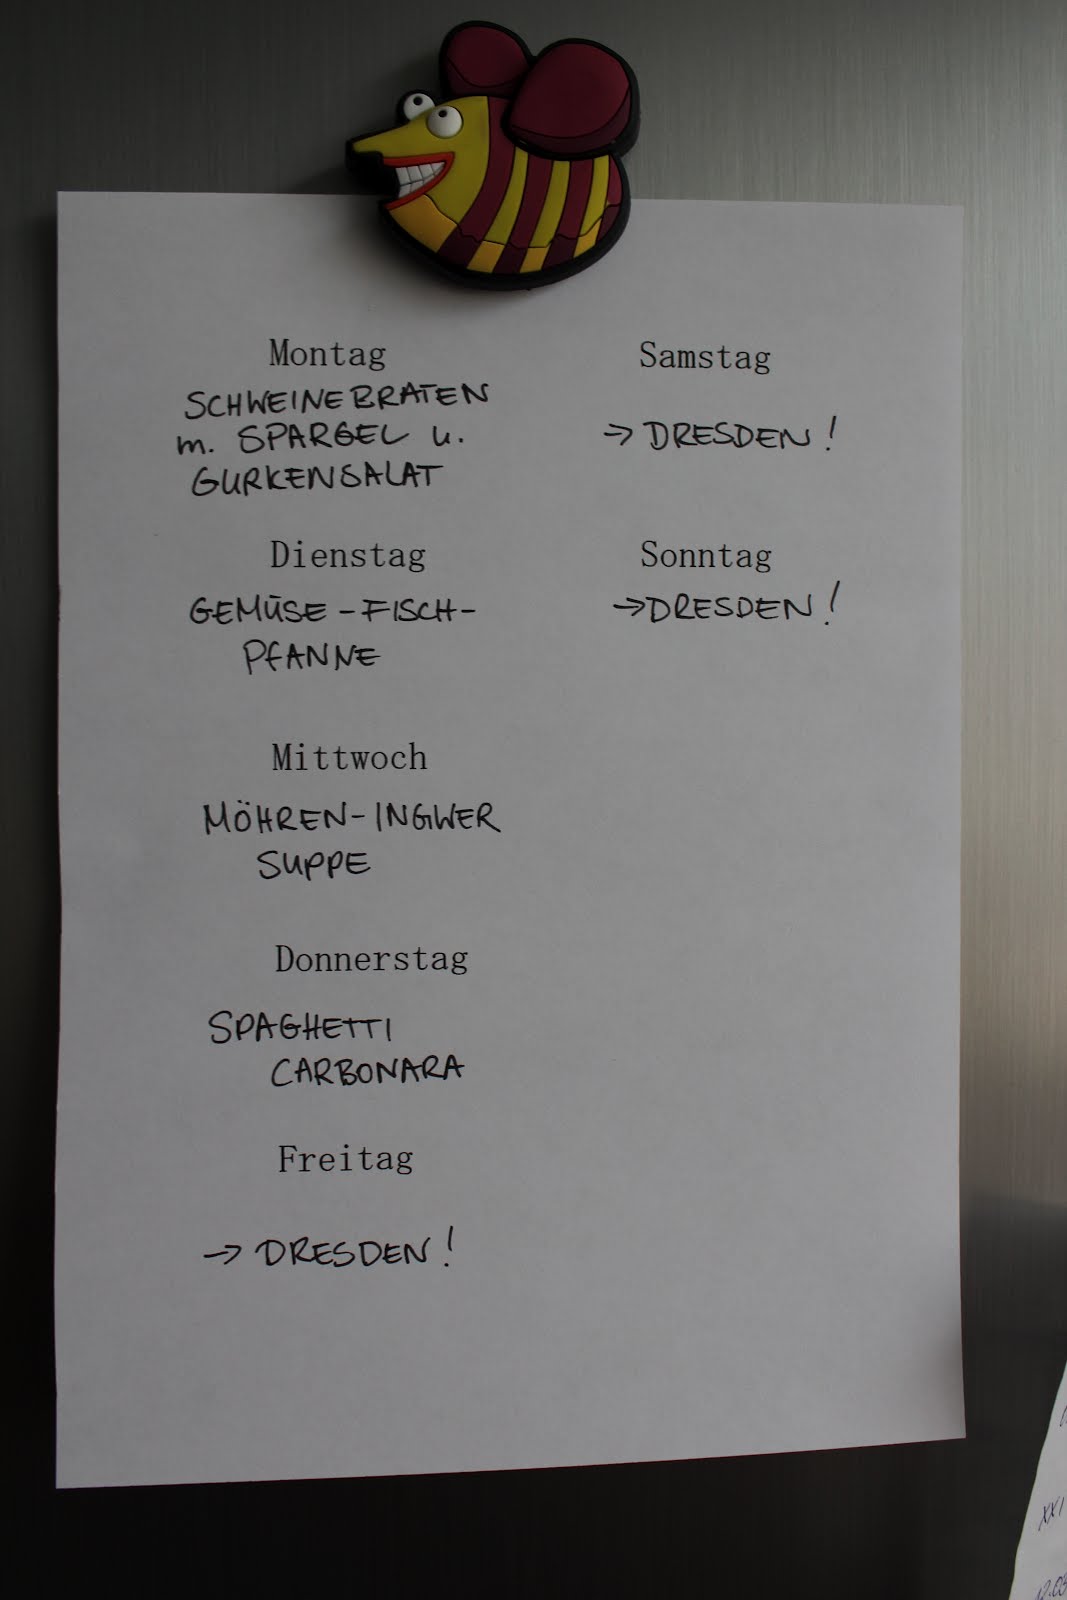 Montag
SCHWEINEBRATEN
m. SPARGEL u.
GURKENSALAT
Dienstag
GEMÜSE-FISCH-
PFANNE
Mittwoch
MÖHREN-INGWER
SUPPE
Donnerstag
SPAGHETTI
CARBONARA
Freitag
→ DRESDEN!
Samstag
→ DRESDEN!
Sonntag
→ DRESDEN!
XXI